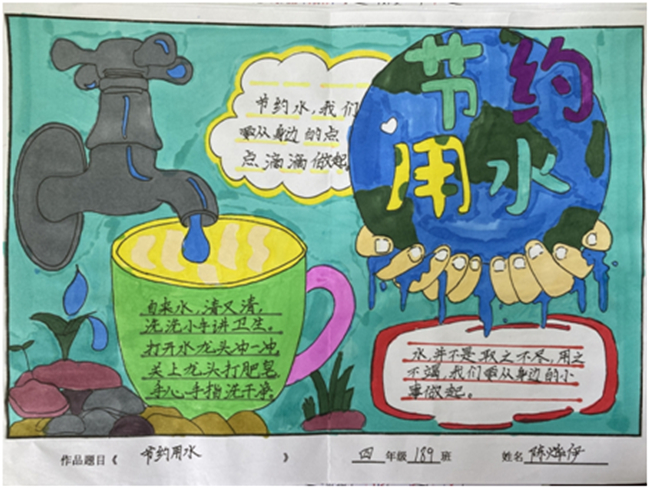 节约
用水
节约水，我们
要从身边的点
点滴滴做起
自来水，清又清，
洗洗小手讲卫生。
打开水龙头冲一冲，
关上龙头打肥皂，
手心手指洗干净。
水，并不是取之不尽，用之
不竭，我们要从身边的小
事做起。
作品题目《 节约用水 》 四 年级 189 班 姓名 陈烨伊